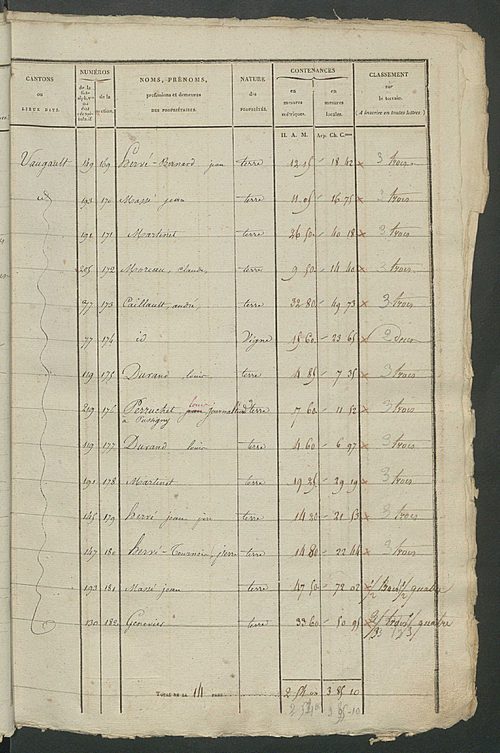 CANTONS ou LIEUX DITS.
NUMÉROS
de la
section.
NOMS, PRÉNOMS,
professions et demeures
DES PROPRIÉTAIRES.
NATURE
des
PROPRIÉTÉS.
CONTENANCES
en mesures métriques.
en mesures locales.
CLASSEMENT
sur
le terrain.
(A inscrire en toutes lettres.)
H. A. M. Arp. Ch. C.
169 hervé-Bernard jean terre 12 15 18 62 3 trois
id 193 170 Massé jean terre 11 05 16 75 3 trois
191 171 Martinet terre 26 50 40 18 3 trois
205 172 Moreau, claude, terre 9 50 14 40 3 trois
77 173 Caillault, andré, terre 32 80 49 73 3 trois
77 174 id Vigne 15 60 23 65 2 deux
119 175 Durand louis terre 4 85 7 35 3 trois
219 176 Perruchet louis journallier terre 7 60 11 52 3 trois
à
119 177 Durand louis terre 4 60 6 97 3 trois
191 178 Martinet terre 19 25 29 19 3 trois
145 179 hervé jean terre 14 20 21 53 3 trois
147 180 hervé-Tournois, pierre terre 14 80 22 44 3 trois
193 181 Massé jean terre 47 50 72 02 trois quatre
130 182 Genevier terre 33 60 50 95 trois quatre
TOTAL DE LA 14 PAGE. 2 54 3 85 10